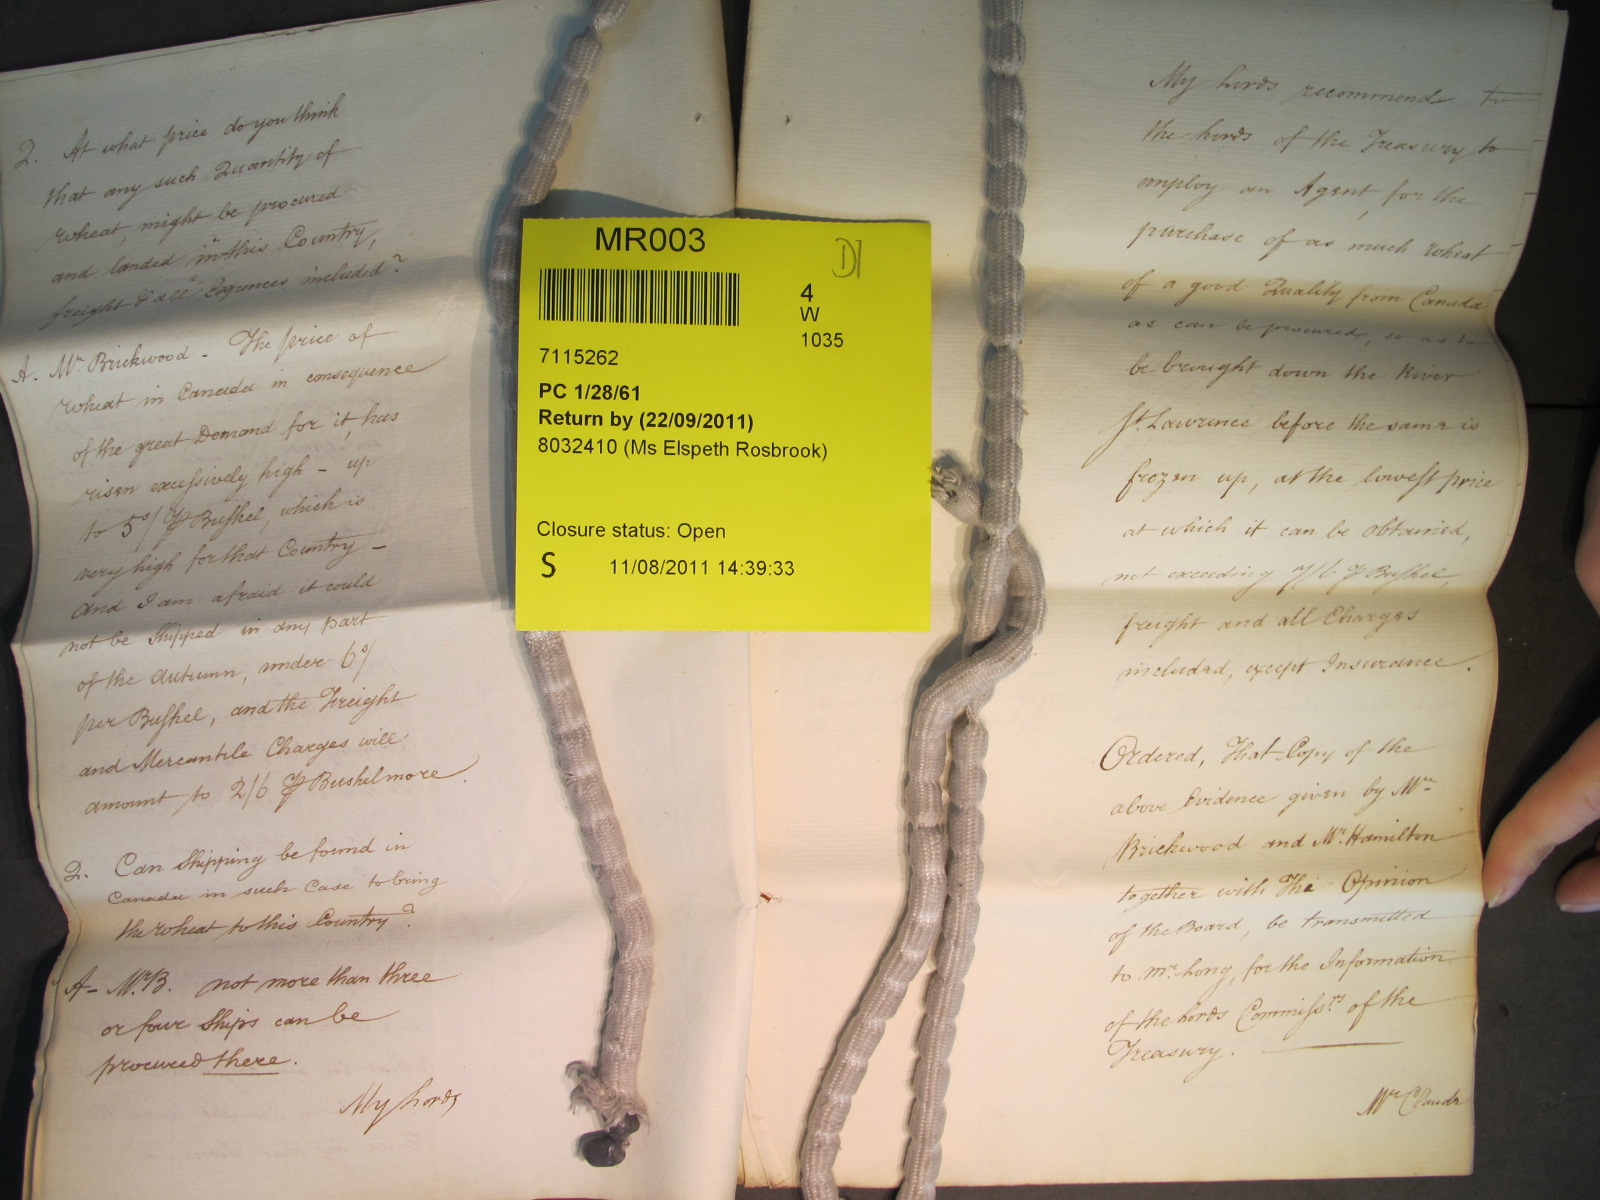 2. At what price do you think
that any such Quantity of
wheat, might be procured
and landed in this Country,
freight & all Expences included?
A. Mr. Brickwood - The price of
wheat in Canada in consequence
of the great Demand for it, has
risen excessively high - up
to 5s/ P Bushel, which is
very high for that Country -
and I am afraid it could
not be Shipped in any part
of the Autumn, under 6s/
per Bushel, and the Freight
and Mercantile Charges will
amount to 2/6 P Bushel more.
2. Can Shipping be found in
Canada in such Case to bring
the wheat to this Country?
A- Mr. B. not more than three
or four Ships can be
procured there.
My Lords
MR003
D1
4
W
1035
7115262
PC 1/28/61
Return by (22/09/2011)
8032410 (Ms Elspeth Rosbrook)
Closure status: Open
S 11/08/2011 14:39:33
My Lords recommend to
the Lords of the Treasury to
employ an Agent, for the
purchase of as much wheat
of a good Quality from Canada
as can be procured, so as to
be brought down the River
St. Lawrence before the same is
frozen up, at the lowest price
at which it can be obtained,
not exceeding 7/6 P Bushel,
freight and all Charges
included, except Insurance.
Ordered, That Copy of the
above Evidence given by Mr.
Brickwood and Mr. Hamilton
together with The Opinion
of the Board, be transmitted
to Mr. Long, for the Information
of the Lords Commissrs of the
Treasury.
Mr Claude